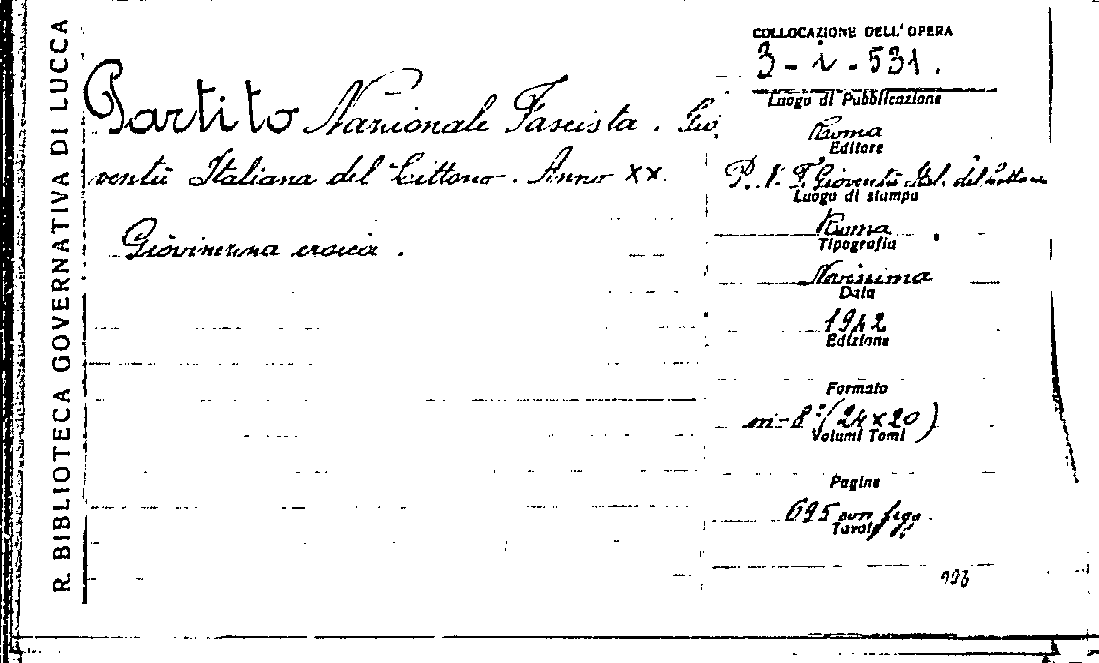 R. BIBLIOTECA GOVERNATIVA DI LUCCA
Partito Nazionale Fascista. Gio
ventù Italiana del Littorio. Anno XX.
Giovinezza eroica.
COLLOCAZIONE DELL'OPERA
3-i-531.
Luogo di Pubblicazione
Roma
Editore
P. N. F. Gioventù Ital. del Littorio
Luogo di stampa
Roma
Tipografia
Novissima
Data
1942
Edizione
Formato
in-8°(24x20)
Volumi Tomi
Pagine
695 con figg.
Tavole